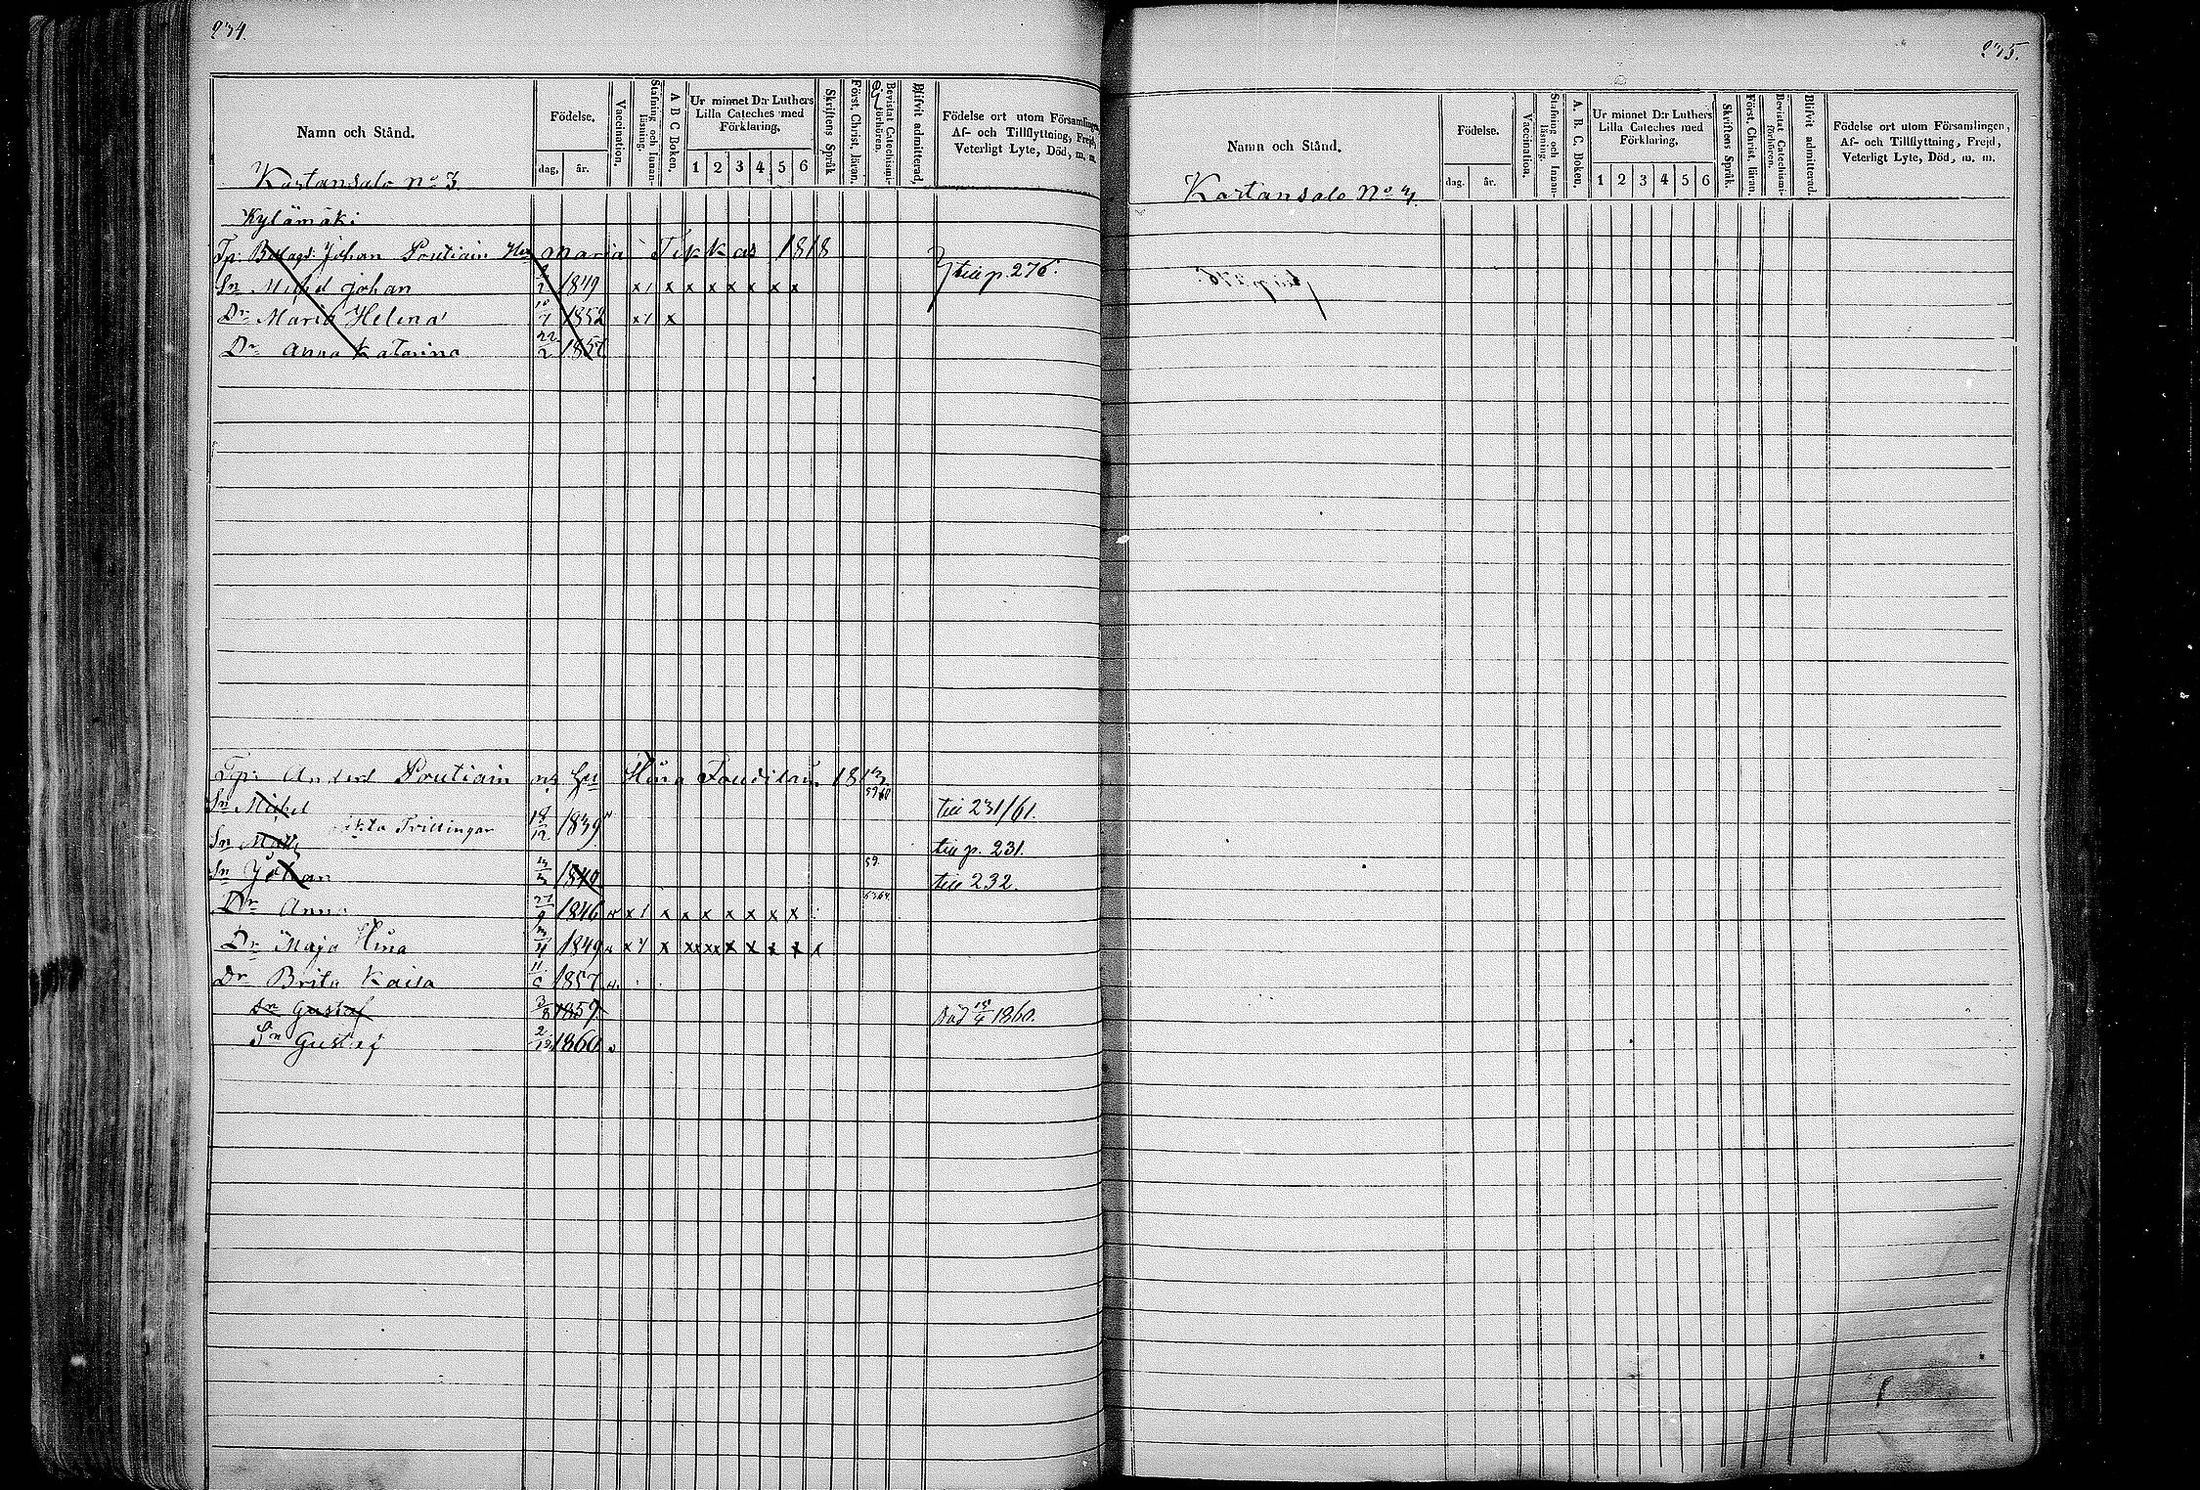 234.
Namn och Stånd.
Födelse.
dag, år.
Vaccination,
Stafning och Innanläsning.
A B C Boken,
Ur minnet D:r Luthers Lilla Cateches med Förklaring,
1 2 3 4 5 6
Skriftens Språk
Först. Christ. läran,
Bevistat Catechismi-förhören.
Blifvit admitterad,
Födelse ort utom Församlingen, Af- och Tillflyttning, Frejd, Veterligt Lyte, Död, m. m.
Kartansalo No 3
Kylämäki
Johan Poutiain Hu Maria Tikkas 1818
Sn Michel Johan 1849 x / x x x x x x x till p. 276.
Dr Maria Helena 10/7 1852 x / x
Dr Anna Katarina 22/2
Anders Poutiain Hu 
Sn Michel till 231/61.
Trillingar 18/12 1839
Sn till p. 231.
Sn Johan 59. till 232.
Dr Anna 27/9 1846 x / x x x x x x x
Dr Maja 1849 x x x x x x x x
Dr Brita Kaisa 1857
Gustaf 1857 död 1860.
Sn Gustaf 2/12 1860
235.
Namn och Stånd.
Födelse.
dag. år.
Vaccination,
Stafning och Innanläsning.
A. B. C. Boken,
Ur minnet D:r Luthers Lilla Cateches med Förklaring,
1 2 3 4 5 6
Skriftens Språk.
Först. Christ. läran,
Bevistat Catechismi-förhören.
Blifvit admitterad.
Födelse ort utom Församlingen, Af- och Tillflyttning, Frejd, Veterligt Lyte, Död, m. m.
Kartansalo No 4.